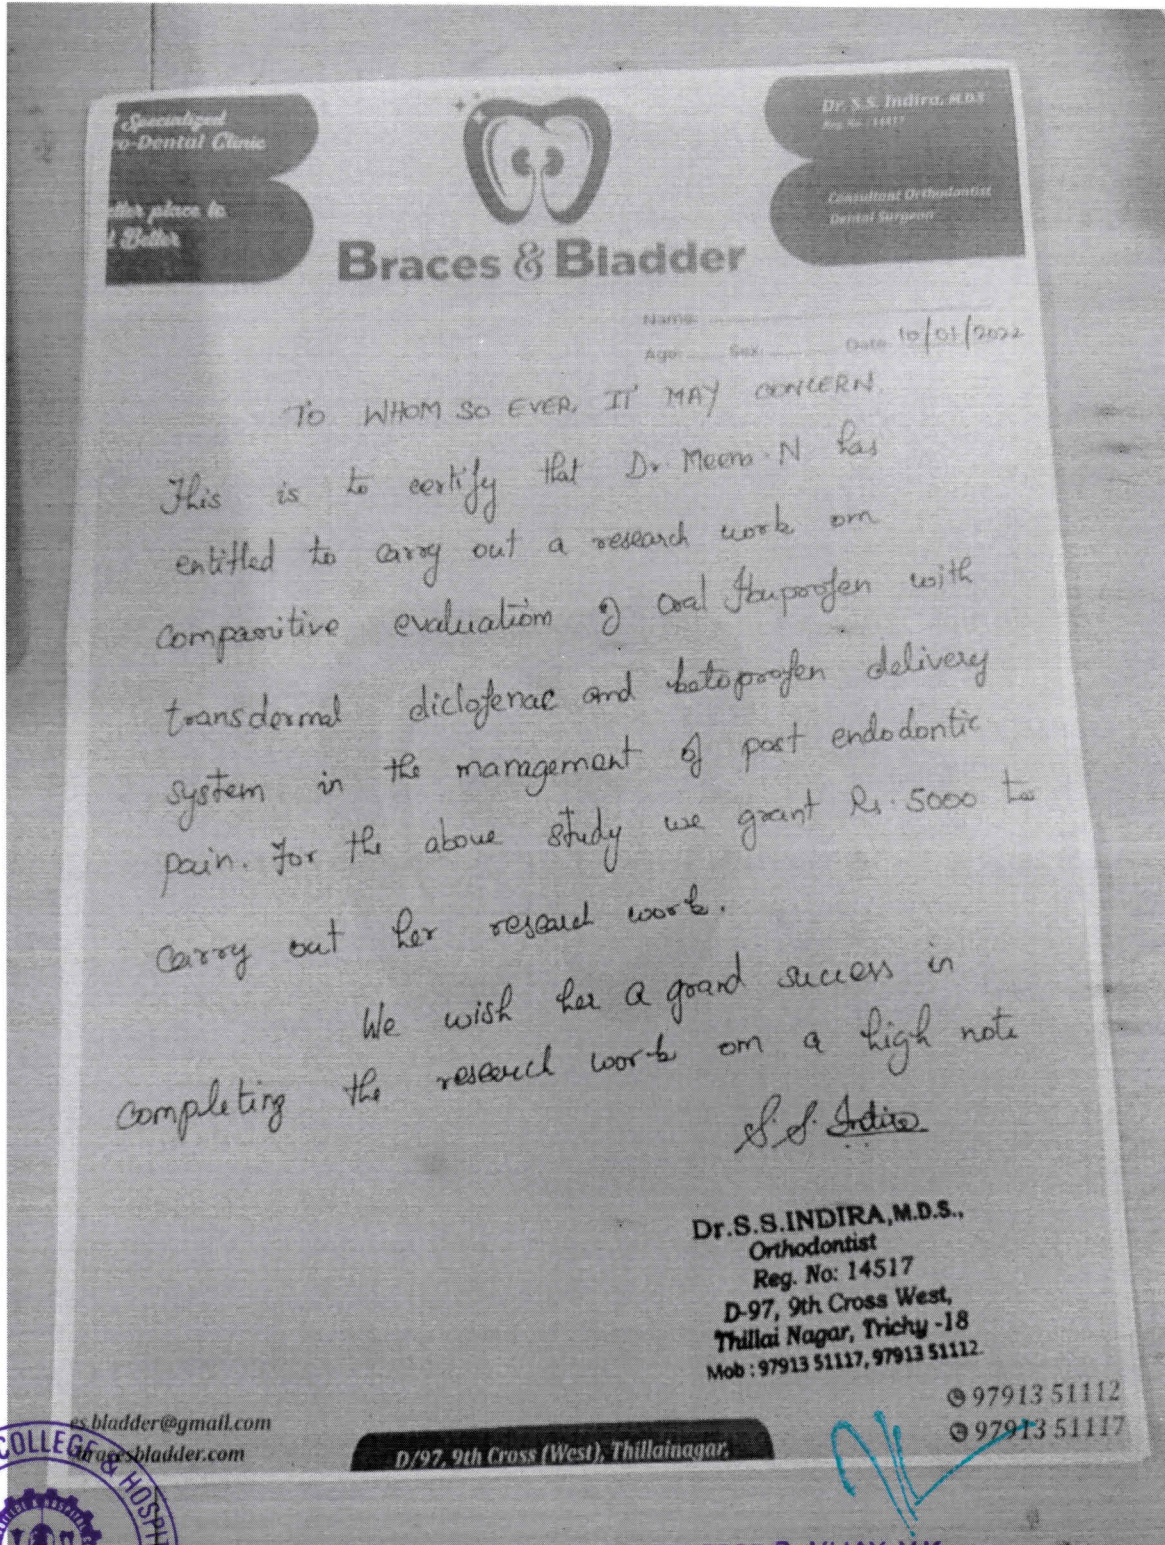 Specialized
o-Dental Clinic
place to
Better
Braces & Bladder
Dr. S.S. Indira, M.D.S
Reg. No :
Consultant Orthodontist
Dental Surgeon
Name:
Age: Sex: Date 10/01/2022
TO WHOM SO EVER, IT MAY CONCERN.
This is to certify that Dr. Meera. N has
entitled to carry out a research work on
comparitive evaluation of oral Ibuprofen with
transdermal diclofenac and ketoprofen delivery
system in the management of post endodontic
pain. For the above study we grant Rs. 5000 to
carry out her research work.
We wish her a grand success in
completing the research work on a high note
S.S. Indira
Dr.S.S.INDIRA,M.D.S.,
Orthodontist
Reg. No: 14517
D-97, 9th Cross West,
Thillai Nagar, Trichy -18
Mob : 97913 51117, 97913 51112.
97913 51112
97913 51117
es.bladder@gmail.com
bracesbladder.com
D/97, 9th Cross (West), Thillainagar,
COLLEGE & HOSPIT